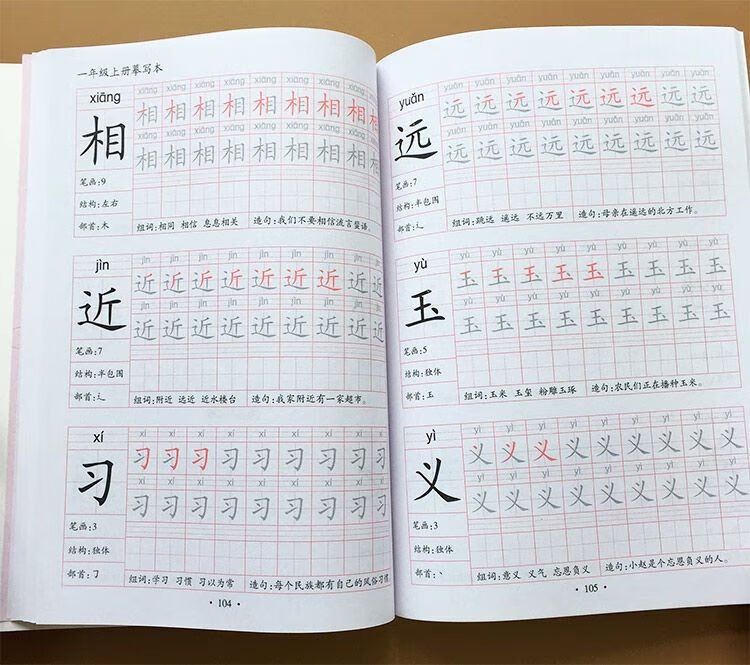 一年级上册摹写本
xiāng
xiāng xiāng xiāng xiāng xiāng xiāng xiāng xiāng xiāng
相 相 相 相 相 相 相 相 相
xiāng xiāng xiāng xiāng xiāng xiāng xiāng xiāng xiāng
相
相 相 相 相 相 相 相 相 相
笔画:9
结构:左右
部首:木
组词:相同 相信 息息相关
造句:我们不要相信流言蜚语。
jìn
jìn jìn jìn jìn jìn jìn jìn jìn jìn
近 近 近 近 近 近 近 近 近
jìn jìn jìn jìn jìn jìn jìn jìn jìn
近
近 近 近 近 近 近 近 近 近
笔画:7
结构:半包围
部首:辶
组词:附近 远近 近水楼台
造句:我家附近有一家超市。
xí
xí xí xí xí xí xí xí xí xí
习 习 习 习 习 习 习 习 习
xí xí xí xí xí xí xí xí xí
习
习 习 习 习 习 习 习 习 习
笔画:3
结构:独体
部首:㇆
组词:学习 习惯 习以为常
造句:每个民族都有自己的风俗习惯。
· 104 ·
yuǎn
yuǎn yuǎn yuǎn yuǎn yuǎn yuǎn yuǎn yuǎn yuǎn
远 远 远 远 远 远 远 远 远
yuǎn yuǎn yuǎn yuǎn yuǎn yuǎn yuǎn yuǎn yuǎn
远
远 远 远 远 远 远 远 远 远
笔画:7
结构:半包围
部首:辶
组词:跳远 遥远 不远万里
造句:母亲在遥远的北方工作。
yù
yù yù yù yù yù yù yù yù yù
玉 玉 玉 玉 玉 玉 玉 玉 玉
yù yù yù yù yù yù yù yù yù
玉
玉 玉 玉 玉 玉 玉 玉 玉 玉
笔画:5
结构:独体
部首:玉
组词:玉米 玉玺 粉雕玉琢
造句:农民们正在播种玉米。
yì
yì yì yì yì yì yì yì yì yì
义 义 义 义 义 义 义 义 义
yì yì yì yì yì yì yì yì yì
义
义 义 义 义 义 义 义 义 义
笔画:3
结构:独体
部首:丶
组词:意义 义气 忘恩负义
造句:小赵是个忘恩负义的人。
· 105 ·